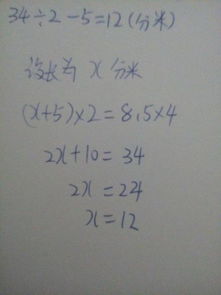 34÷2-5=12(分米)
设长为 x 分米
(x+5)×2=8.5×4
2x+10=34
2x=24
x=12